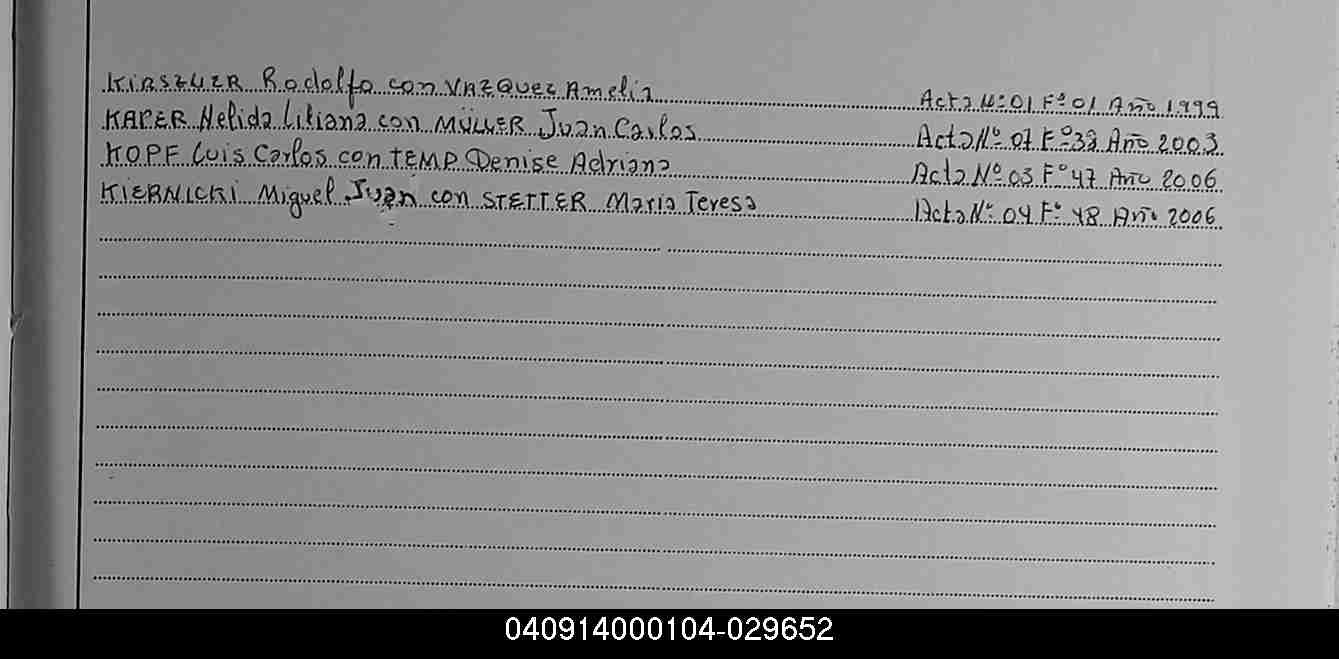 KIRSZUZR Rodolfo con VAZQUEZ Amelia Acta Nº 01 Fº 01 Año 1999
KAPER Nelida Liliana con MÜLLER Juan Carlos Acta Nº 07 Fº 32 Año 2003
KOPF Luis Carlos con TEMP Denise Adriana Acta Nº 03 Fº 47 Año 2006
KIERNICKI Miguel Juan con STETTER Maria Teresa Acta Nº 04 Fº 48 Año 2006
040914000104-029652